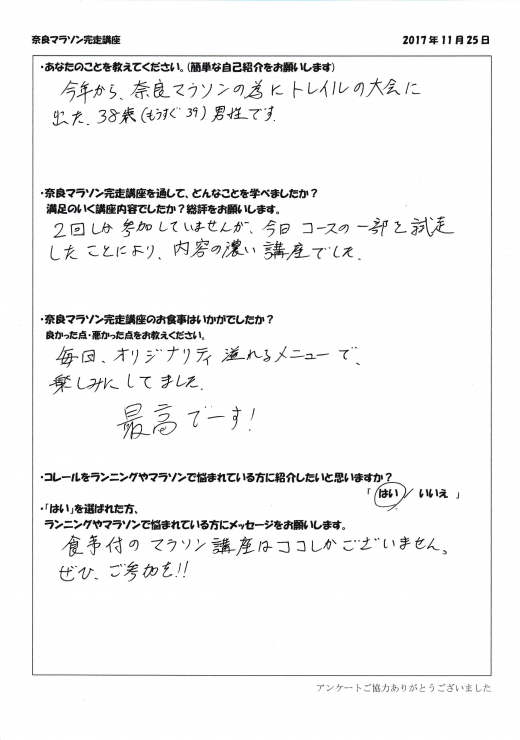 奈良マラソン完走講座
2017年11月25日
・あなたのことを教えてください。(簡単な自己紹介をお願いします)
今年から、奈良マラソンの為にトレイルの大会に
出た、38歳(もうすぐ39)男性です。
・奈良マラソン完走講座を通して、どんなことを学べましたか?
満足のいく講座内容でしたか?総評をお願いします。
2回しか参加していませんが、今日コースの一部を試走
したことにより、内容の濃い講座でした。
・奈良マラソン完走講座のお食事はいかがでしたか?
良かった点・悪かった点をお教えください。
毎回、オリジナリティ溢れるメニューで、
楽しみにしてました。
最高でーす!
・コレールをランニングやマラソンで悩まれている方に紹介したいと思いますか?
「 はい / いいえ 」
・「はい」を選ばれた方、
ランニングやマラソンで悩まれている方にメッセージをお願いします。
食事付のマラソン講座はココしかございません。
ぜひ、ご参加を!!
アンケートご協力ありがとうございました